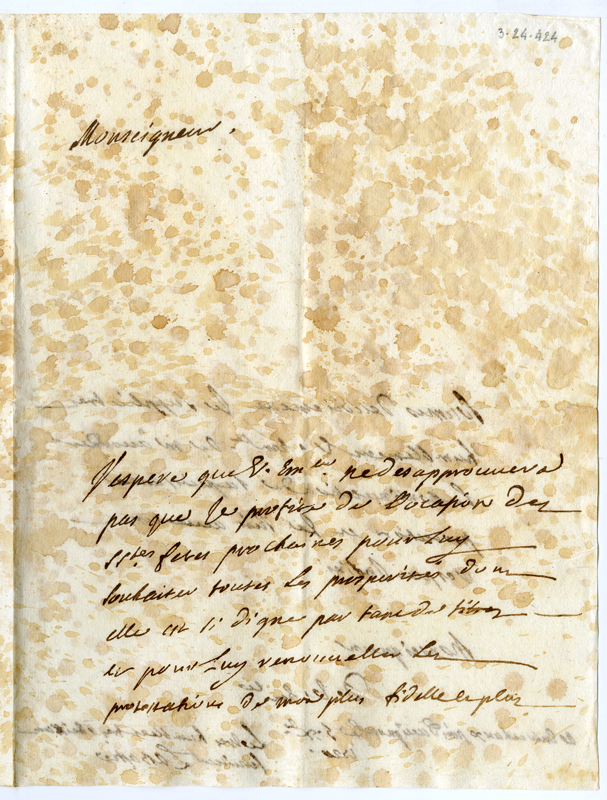 3-24-424
Monseigneur.
J'espere que V. Em.ce ne desapprouvera
pas que je profite de l'ocasion des
sstes fetes prochaines pour Luy
souhaiter toutes les prosperités dont
elle est si digne par tant de titres
et pour Luy renouveller les
protestations de mon plus fidelle et plus